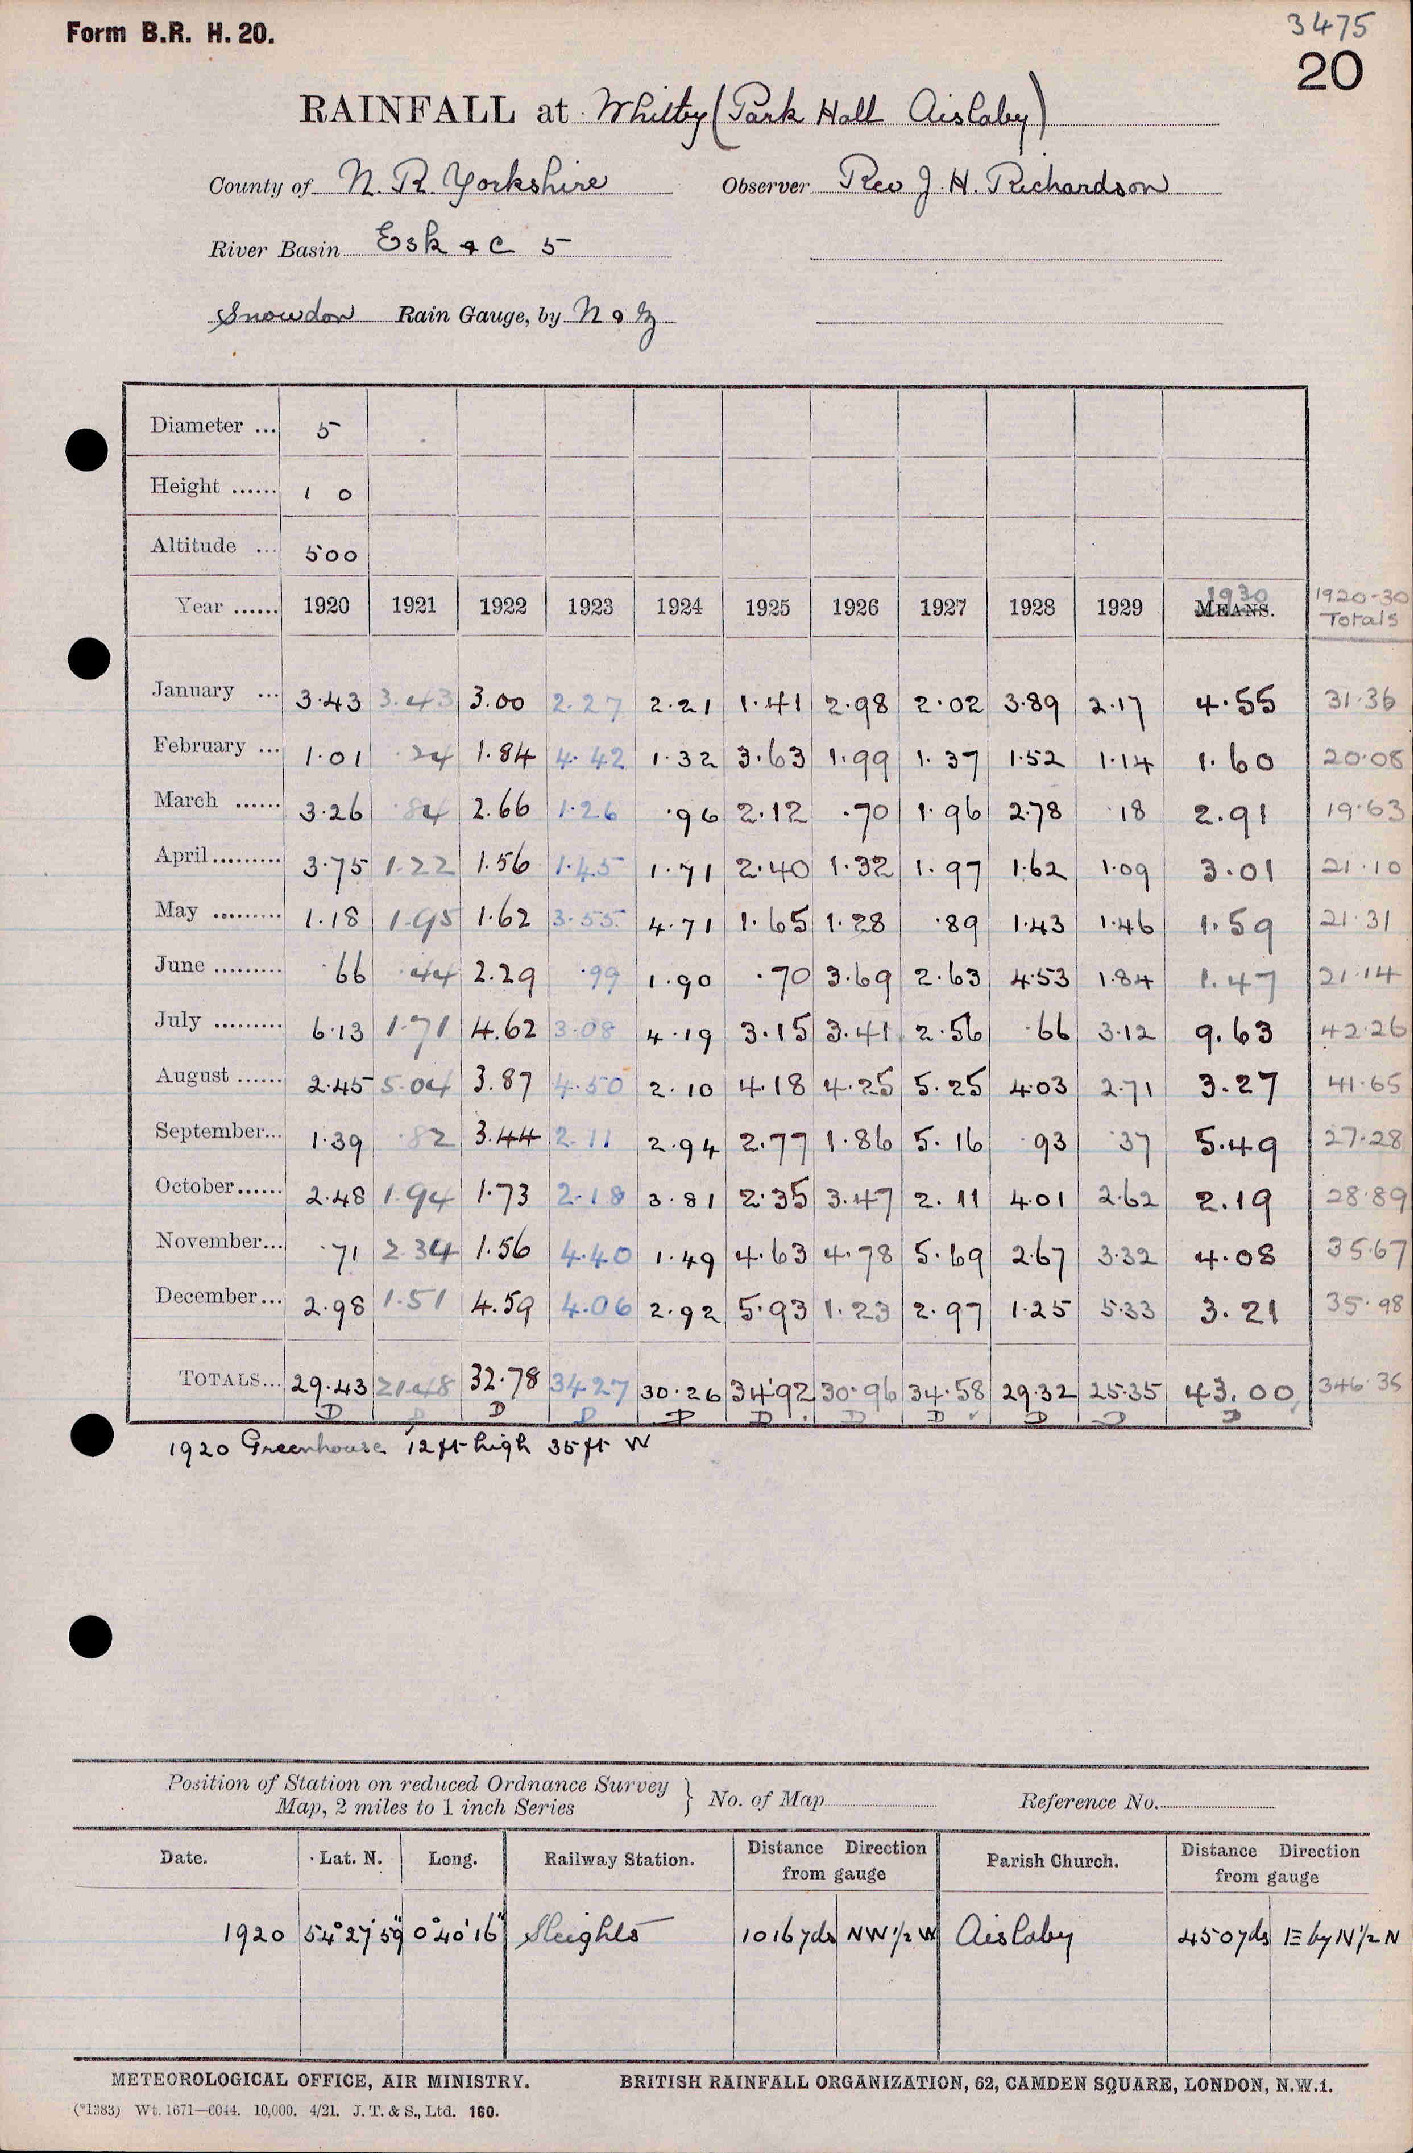 Form B.R. H. 20.
3475
20
RAINFALL at Whitby (Park Hall Aislaby)
County of N. R. Yorkshire Observer Rev J. H. Richardson
River Basin Esk & C 5
Snowdon Rain Gauge, by N & Z
Diameter ... 5
Height ...... 1 0
Altitude ... 500
Year ...... 1920 1921 1922 1923 1924 1925 1926 1927 1928 1929 MEANS. 1930 1920-30 Totals
January ... 3.43 3.43 3.00 2.27 2.21 1.41 2.98 2.02 3.89 2.17 4.55 31.36
February ... 1.01 .24 1.84 4.42 1.32 3.63 1.99 1.37 1.52 1.14 1.60 20.08
March ...... 3.26 .84 2.66 1.26 .96 2.12 .70 1.96 2.78 .18 2.91 19.63
April ......... 3.75 1.22 1.56 1.45 1.71 2.40 1.32 1.97 1.62 1.09 3.01 21.10
May ......... 1.18 1.95 1.62 3.55 4.71 1.65 1.28 .89 1.43 1.46 1.59 21.31
June ......... .66 .44 2.29 .99 1.90 .70 3.69 2.63 4.53 1.84 1.47 21.14
July ......... 6.13 1.71 4.62 3.08 4.19 3.15 3.41 2.56 .66 3.12 9.63 42.26
August ...... 2.45 5.04 3.87 4.50 2.10 4.18 4.25 5.25 4.03 2.71 3.27 41.65
September... 1.39 .82 3.44 2.11 2.94 2.77 1.86 5.16 .93 .37 5.49 27.28
October...... 2.48 1.94 1.73 2.18 3.81 2.35 3.47 2.11 4.01 2.62 2.19 28.89
November... .71 2.34 1.56 4.40 1.49 4.63 4.78 5.69 2.67 3.32 4.08 35.67
December... 2.98 1.51 4.59 4.06 2.92 5.93 1.23 2.97 1.25 5.33 3.21 35.98
TOTALS... 29.43 21.48 32.78 34.27 30.26 34.92 30.96 34.58 29.32 25.35 43.00 346.35
D D D D D D D D D D D
1920 Greenhouse 12 ft high 35 ft W
Position of Station on reduced Ordnance Survey
Map, 2 miles to 1 inch Series } No. of Map Reference No.
Date. Lat. N. Long. Railway Station. Distance Direction from gauge Parish Church. Distance Direction from gauge
1920 54° 27' 59" 0° 40' 16" Sleights 1016 yds NW ½ W Aislaby 450 yds E by N ½ N
METEOROLOGICAL OFFICE, AIR MINISTRY. BRITISH RAINFALL ORGANIZATION, 62, CAMDEN SQUARE, LONDON, N.W.1.
(*1383) Wt. 1671—6044. 10,000. 4/21. J. T. & S., Ltd. 160.